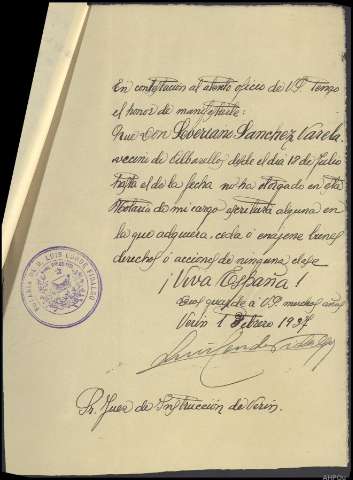 En contestación al atento oficio de V.S. Tengo
el honor de manifestarle:
Que Don Severiano Sanchez Varela
vecino de Cilbarello, desde el dia 18 de Julio
hasta el de la fecha no ha otorgado en esta
Notaria de mi cargo escritura alguna en
la que adquiera, ceda ó enajene bienes
derechos ó acciones de ninguna clase
¡VIVA ESPAÑA!
Dios guarde a V.S. muchos años
Verín 1 Febrero 1937
Luis Conde Fidalgo
NOTARIA DE D. LUIS CONDE FIDALGO
Sr. Juez de Instrucción de Verín.
AHPOU